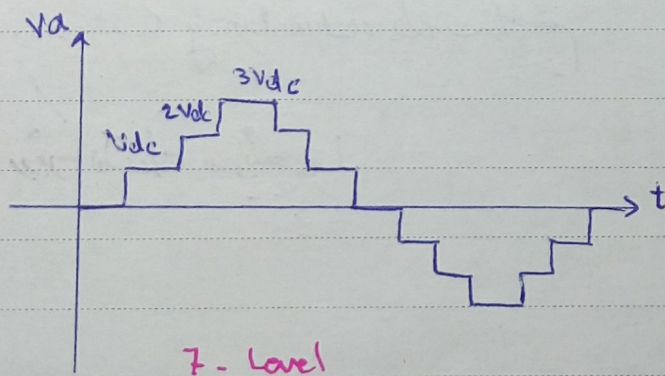 Va
3Vdc
2Vdc
Vdc
t
7 - Level